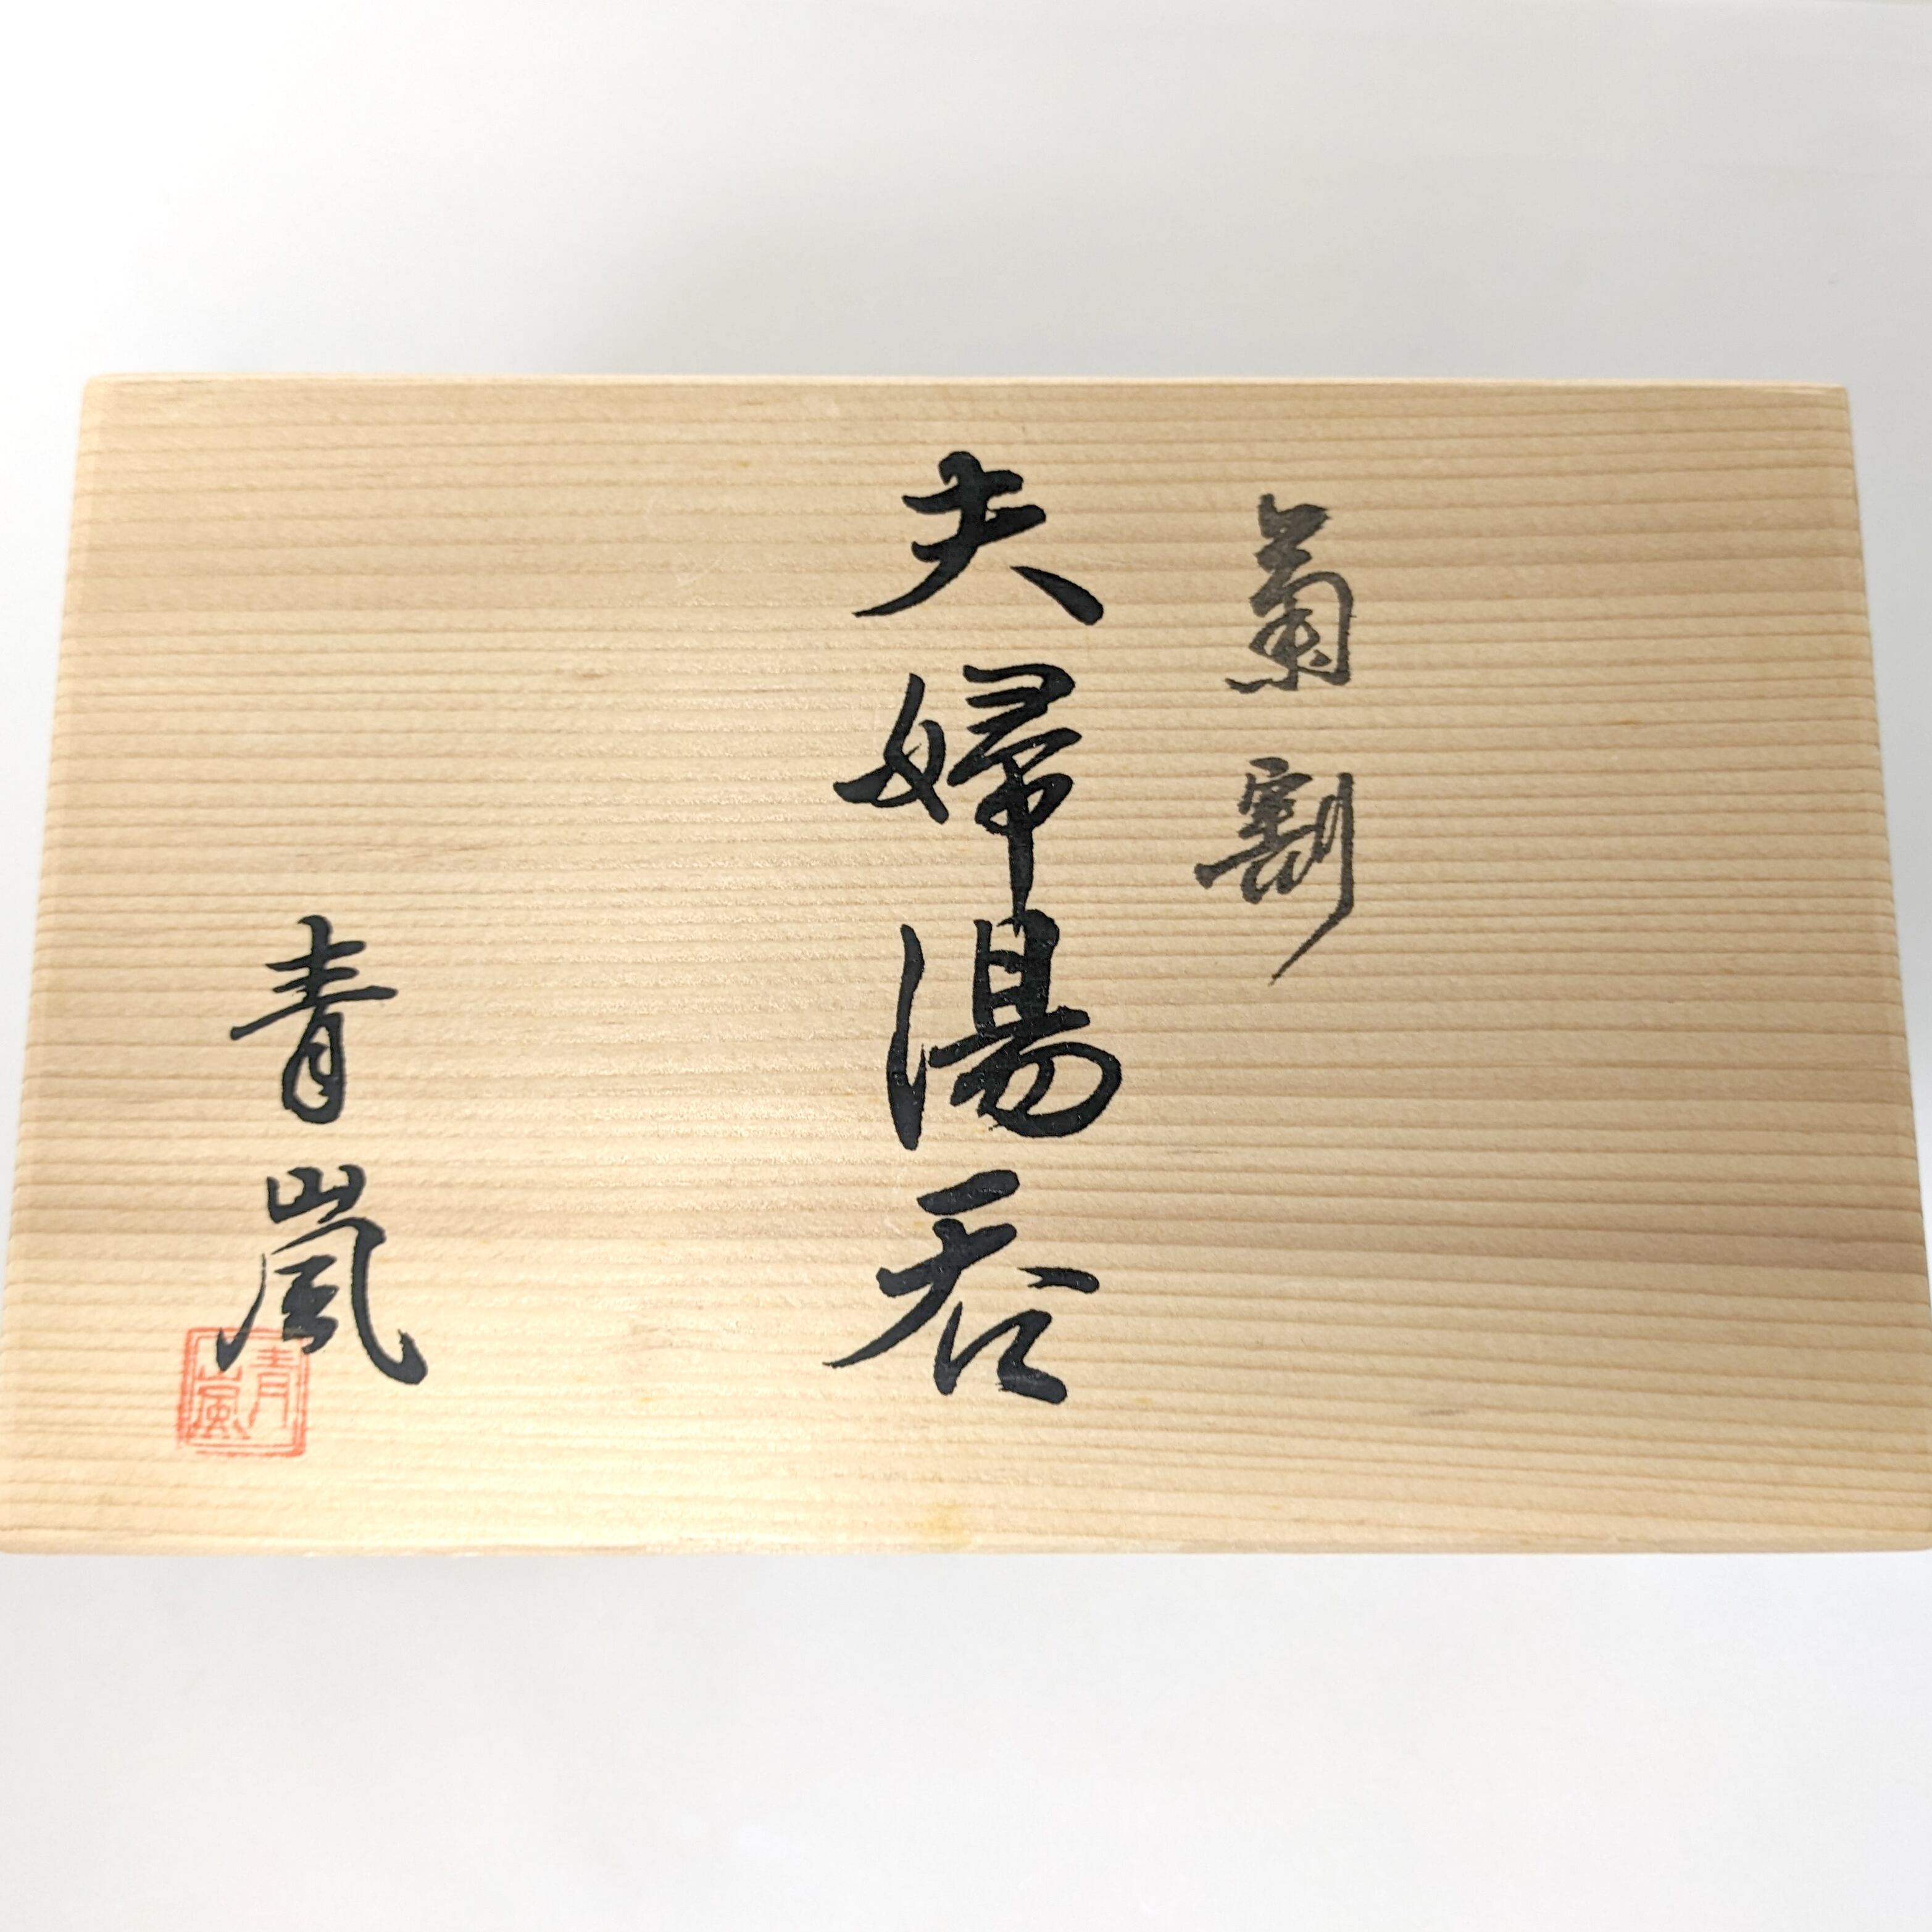 菊割
夫婦湯呑
青嵐
青嵐